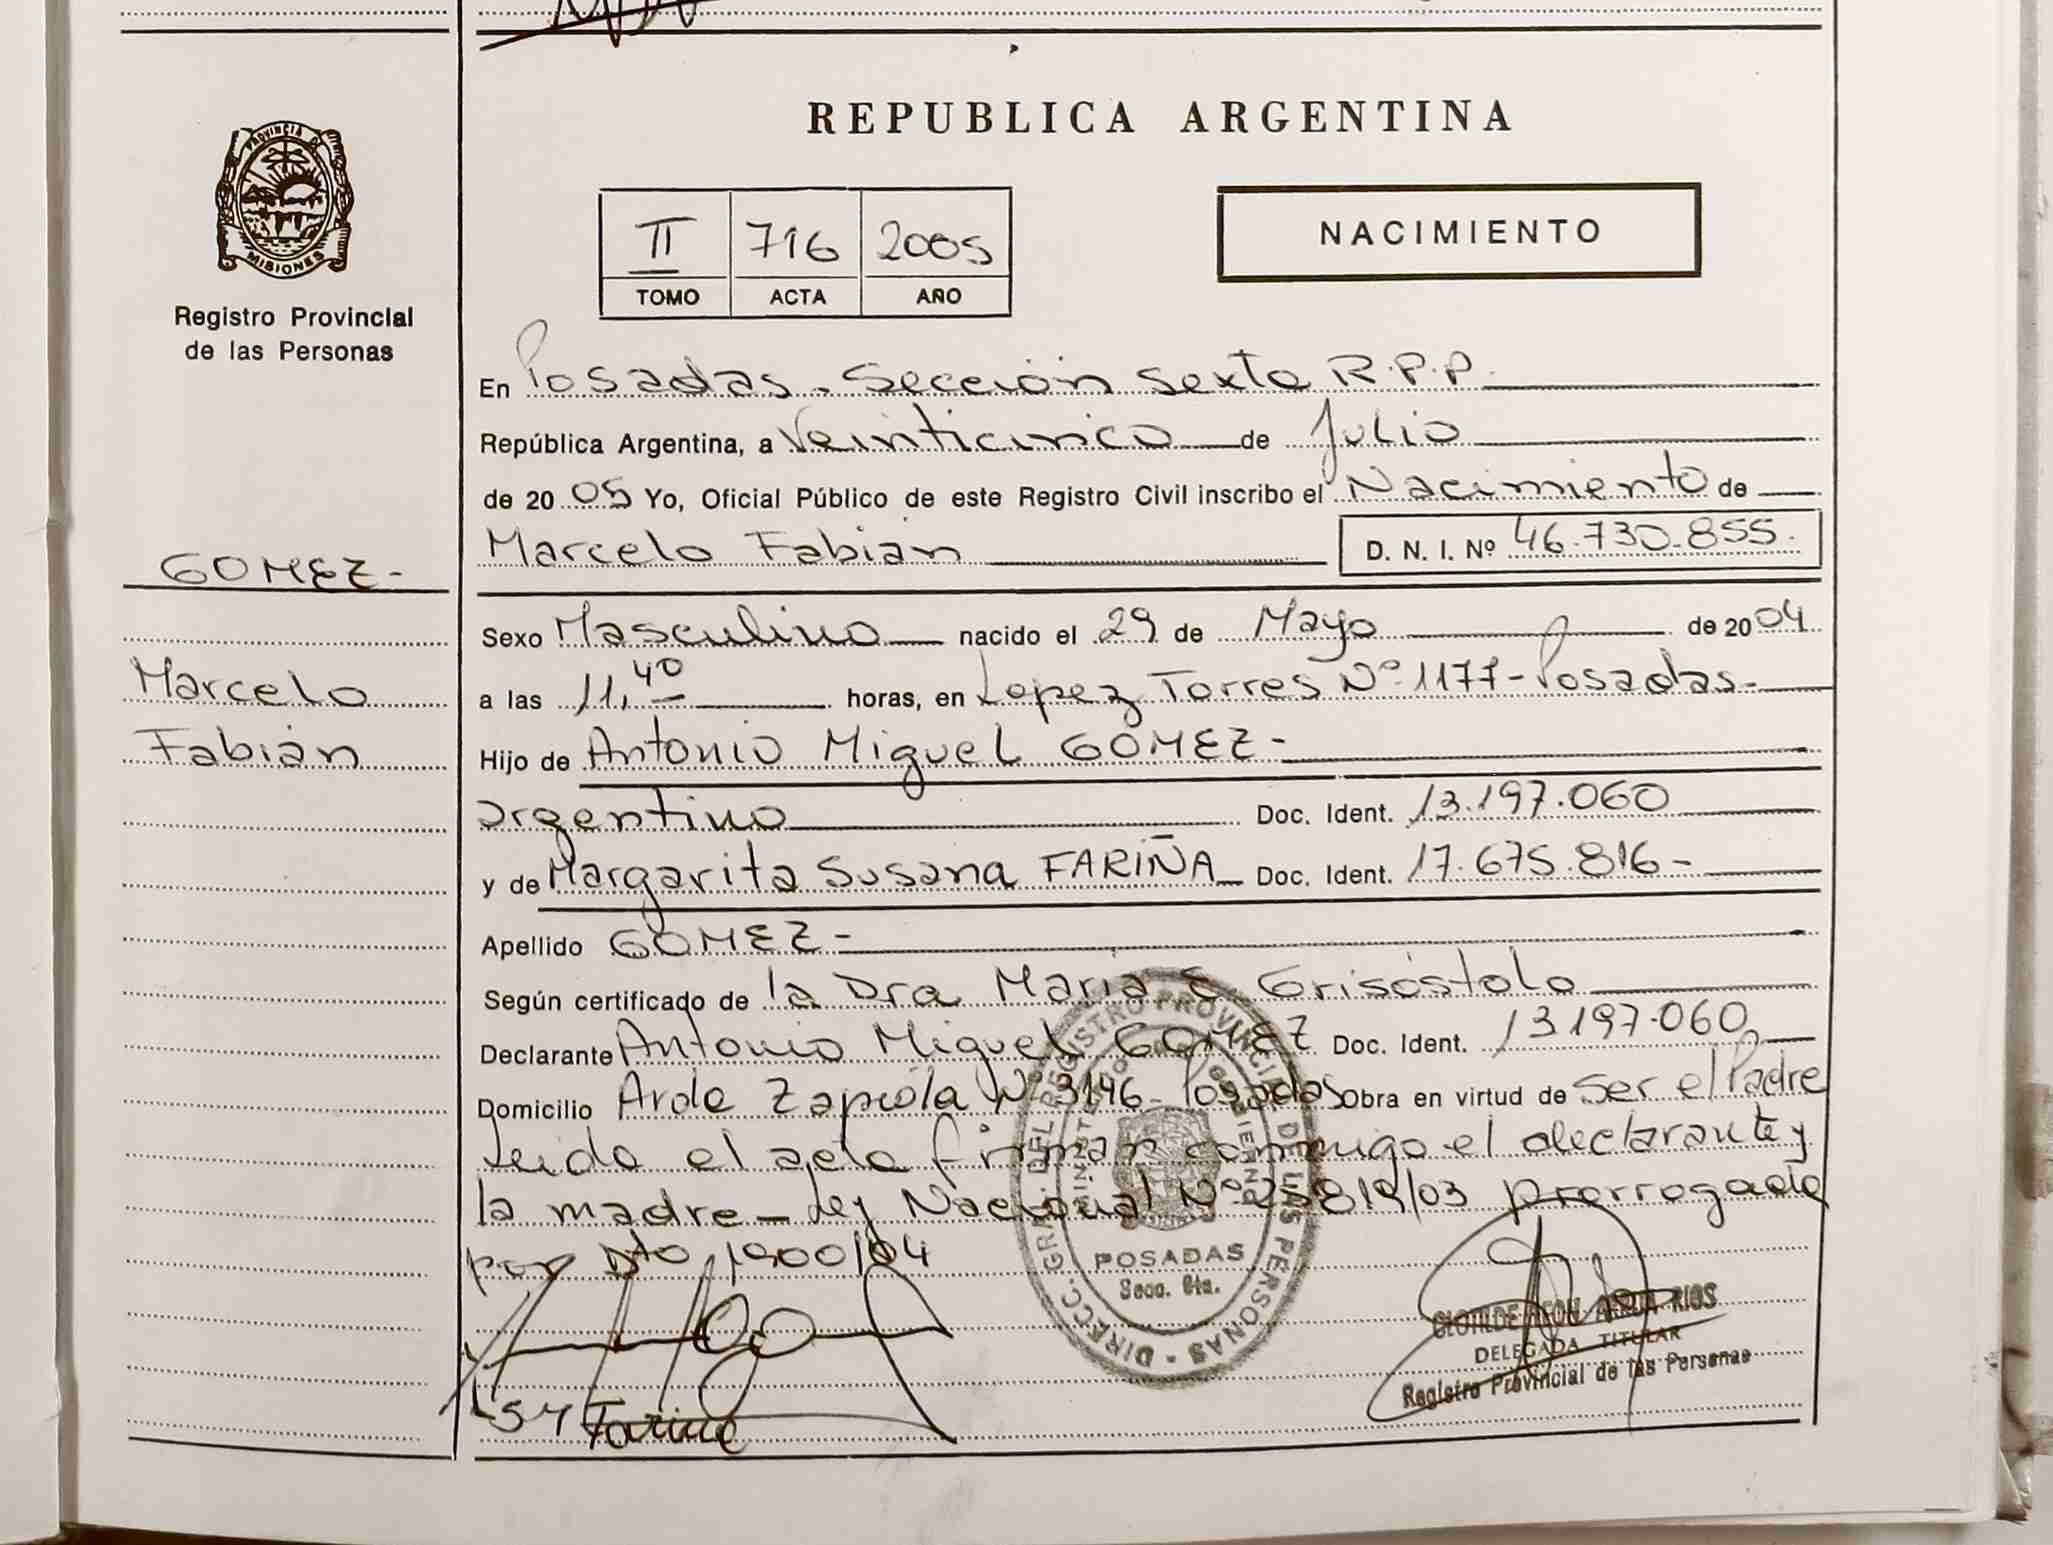 REPUBLICA ARGENTINA
PROVINCIA DE
MISIONES
Registro Provincial
de las Personas
II 716 2005
TOMO ACTA AÑO
NACIMIENTO
En Posadas. Sección Sexta R.P.P.
República Argentina, a Veinticinco de Julio
de 20 05 Yo, Oficial Público de este Registro Civil inscribo el Nacimiento de
Marcelo Fabián D. N. I. Nº 46.730.855.
GOMEZ-
Sexo Masculino nacido el 29 de Mayo de 20 04
Marcelo
a las 11,40 horas, en Lopez Torres Nº 1177-Posadas-
Fabián
Hijo de Antonio Miguel GOMEZ-
argentino Doc. Ident. 13.197.060
y de Margarita Susana FARIÑA Doc. Ident. 17.675.816-
Apellido GOMEZ-
Según certificado de la Dra Maria E Grisóstolo
Declarante Antonio Miguel GOMEZ Doc. Ident. 13197.060
Domicilio Avda Zapiola Nº 3146- Posadas Obra en virtud de Ser el Padre
Leida el acta firman conmigo el declarante y
la madre- Ley Nacional Nº 25819/03 prorrogada
por Dto 1900/04
DIRECC. GRAL. DEL REGISTRO PROVINCIAL DE LAS PERSONAS
POSADAS
Secc. 6ta.
DELEGADA TITULAR
Registro Provincial de las Personas